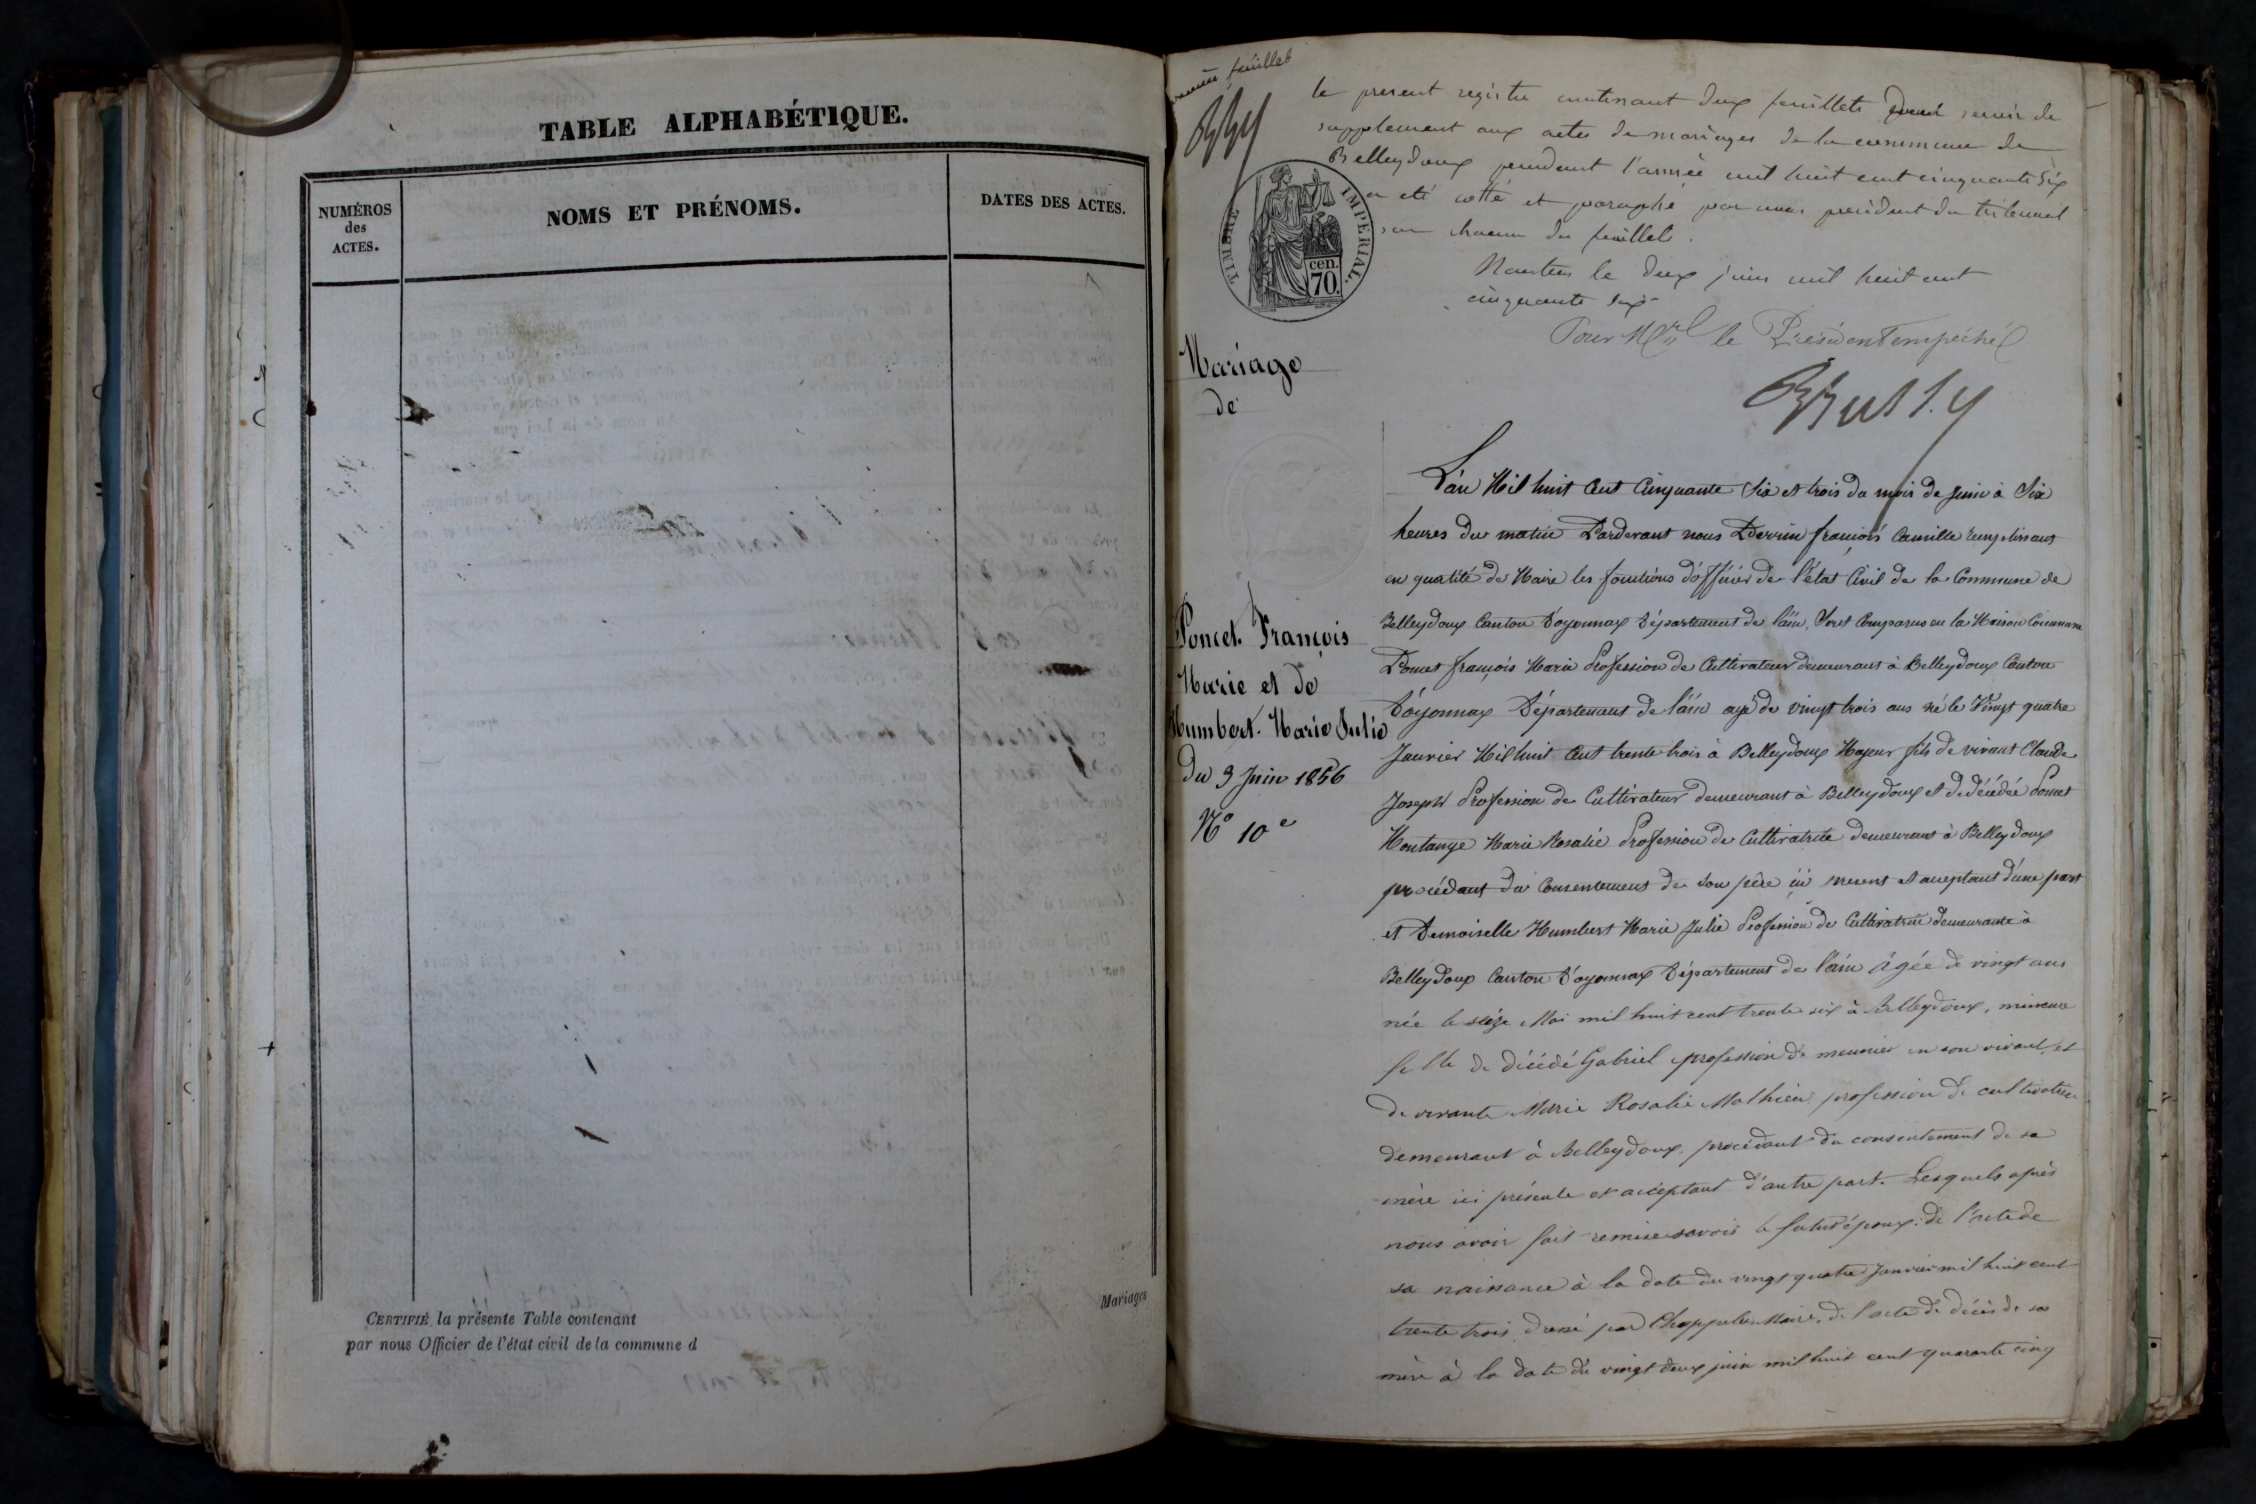 TABLE ALPHABÉTIQUE.
NUMÉROS
des
ACTES.
NOMS ET PRÉNOMS.
DATES DES ACTES.
CERTIFIÉ la présente Table contenant
par nous Officier de l'état civil de la commune d
Mariages
feuillet
le present registre contenant deux feuillets devant servir de
supplement aux actes de mariages de la commune de
Belleydoux pendant l'année mil huit cent cinquante six
a été cotté et paraphé par nous président du tribunal
sur chacun des feuillets.
Nantua le deux juin mil huit cent
cinquante six
Pour Mr le Président empêché
TIMBRE IMPERIAL.
cen.
70.
Mariage
de
Poncet François
Marie et de
Humbert Marie Julie
du 3 Juin 1856
N° 10e
L'an Mil huit Cent Cinquante Six et trois du mois de Juin à Six
heures du matin Pardevant nous Perrin françois Camille remplissant
en qualité de Maire les fonctions d'officier de l'état Civil de la Commune de
Belleydoux Canton d'oyonnax Département de l'ain, Sont Comparus en la Maison Commune
Poncet françois Marie Profession de Cultivateur demeurant à Belleydoux Canton
d'oyonnax Département de l'ain agé de vingt trois ans né le Vingt quatre
Janvier Mil huit Cent trente trois à Belleydoux Majeur fils de vivant Claude
Joseph Profession de Cultivateur demeurant à Belleydoux et de décédée Poncet
Montange Marie Rosalie Profession de Cultivatrice demeurant à Belleydoux
procédant du Consentement de son père ici present et acceptant d'une part
et Demoiselle Humbert Marie Julie Profession de Cultivatrice demeurante à
Belleydoux Canton d'oyonnax Département de l'ain âgée de vingt ans
née le seize Mai mil huit cent trente six à Belleydoux, mineure
fille de décédé Gabriel profession de meunier en son vivant, et
de vivante Marie Rosalie Mathieu profession de cultivatrice
demeurant à Belleydoux, procédant du consentement de sa
mère ici présente et acceptant d'autre part. Lesquels après
nous avoir fait remise savoir le futur époux: de l'acte de
sa naissance à la date du vingt quatre Janvier mil huit cent
trente trois, dressé par Maire, de l'acte de décès de sa
mère à la date du vingt deux juin mil huit cent quarante cinq